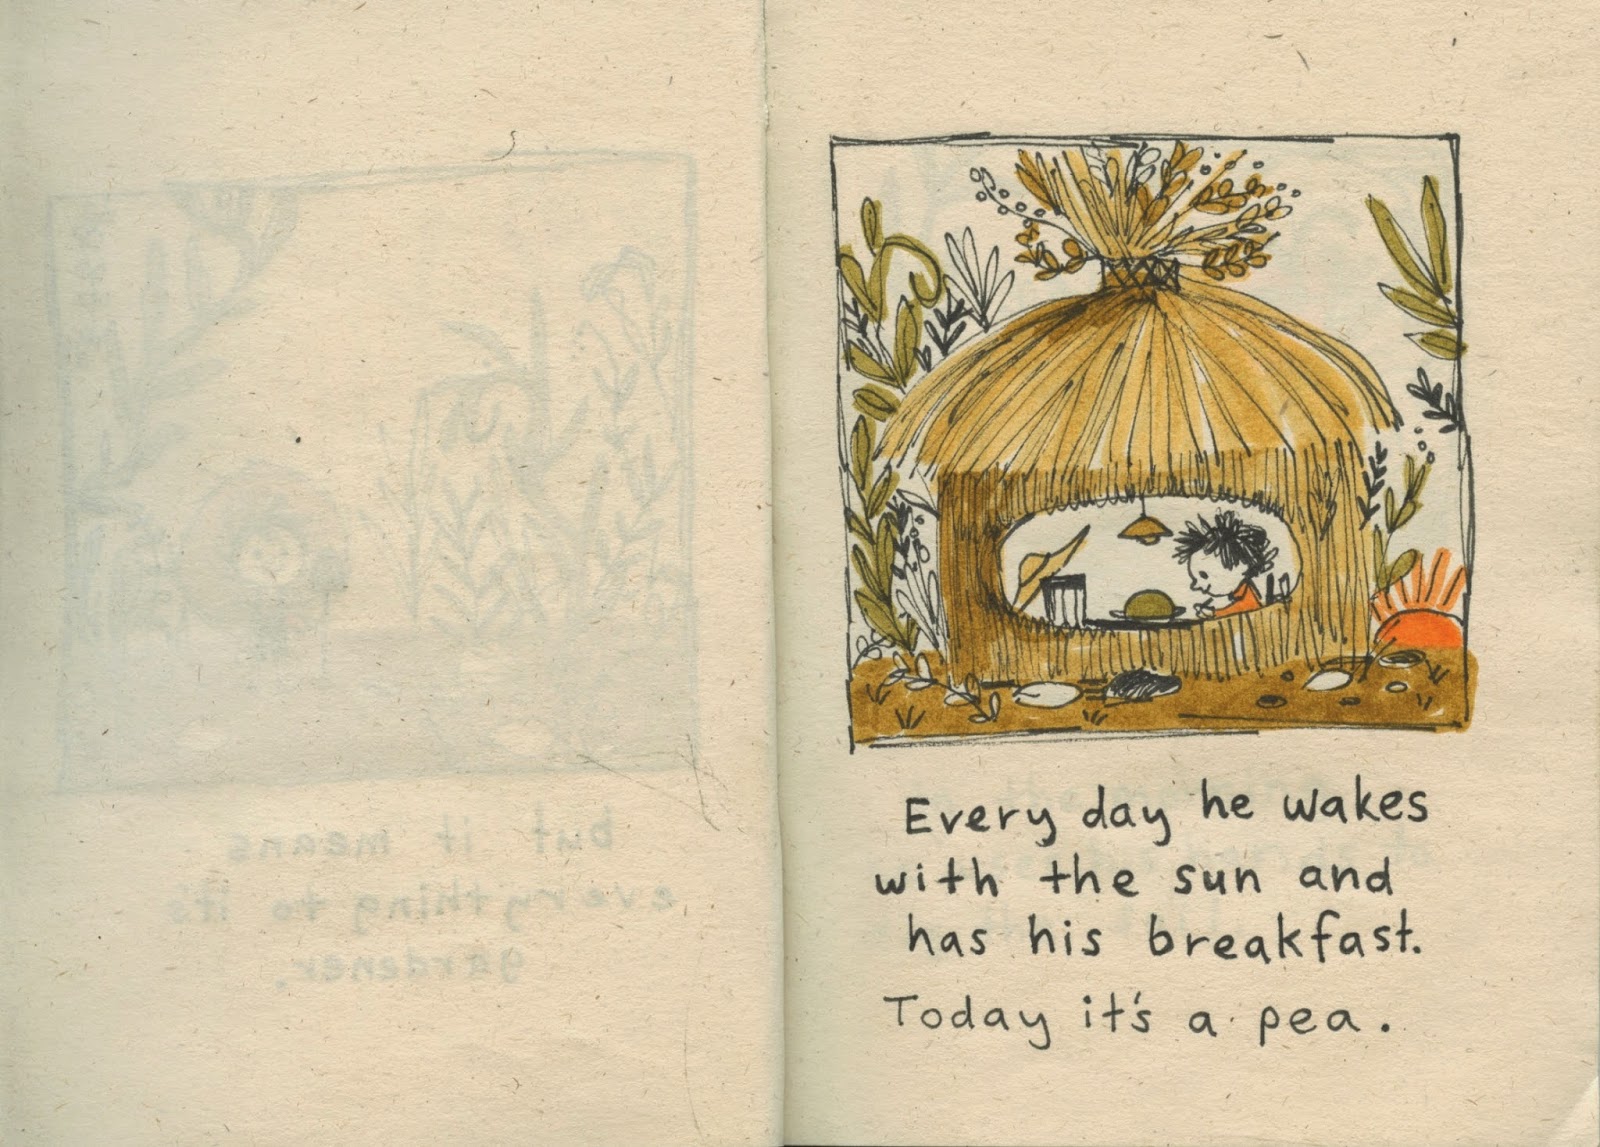 but it means
everything to it's
gardener.
Every day he wakes
with the sun and
has his breakfast.
Today it's a pea.